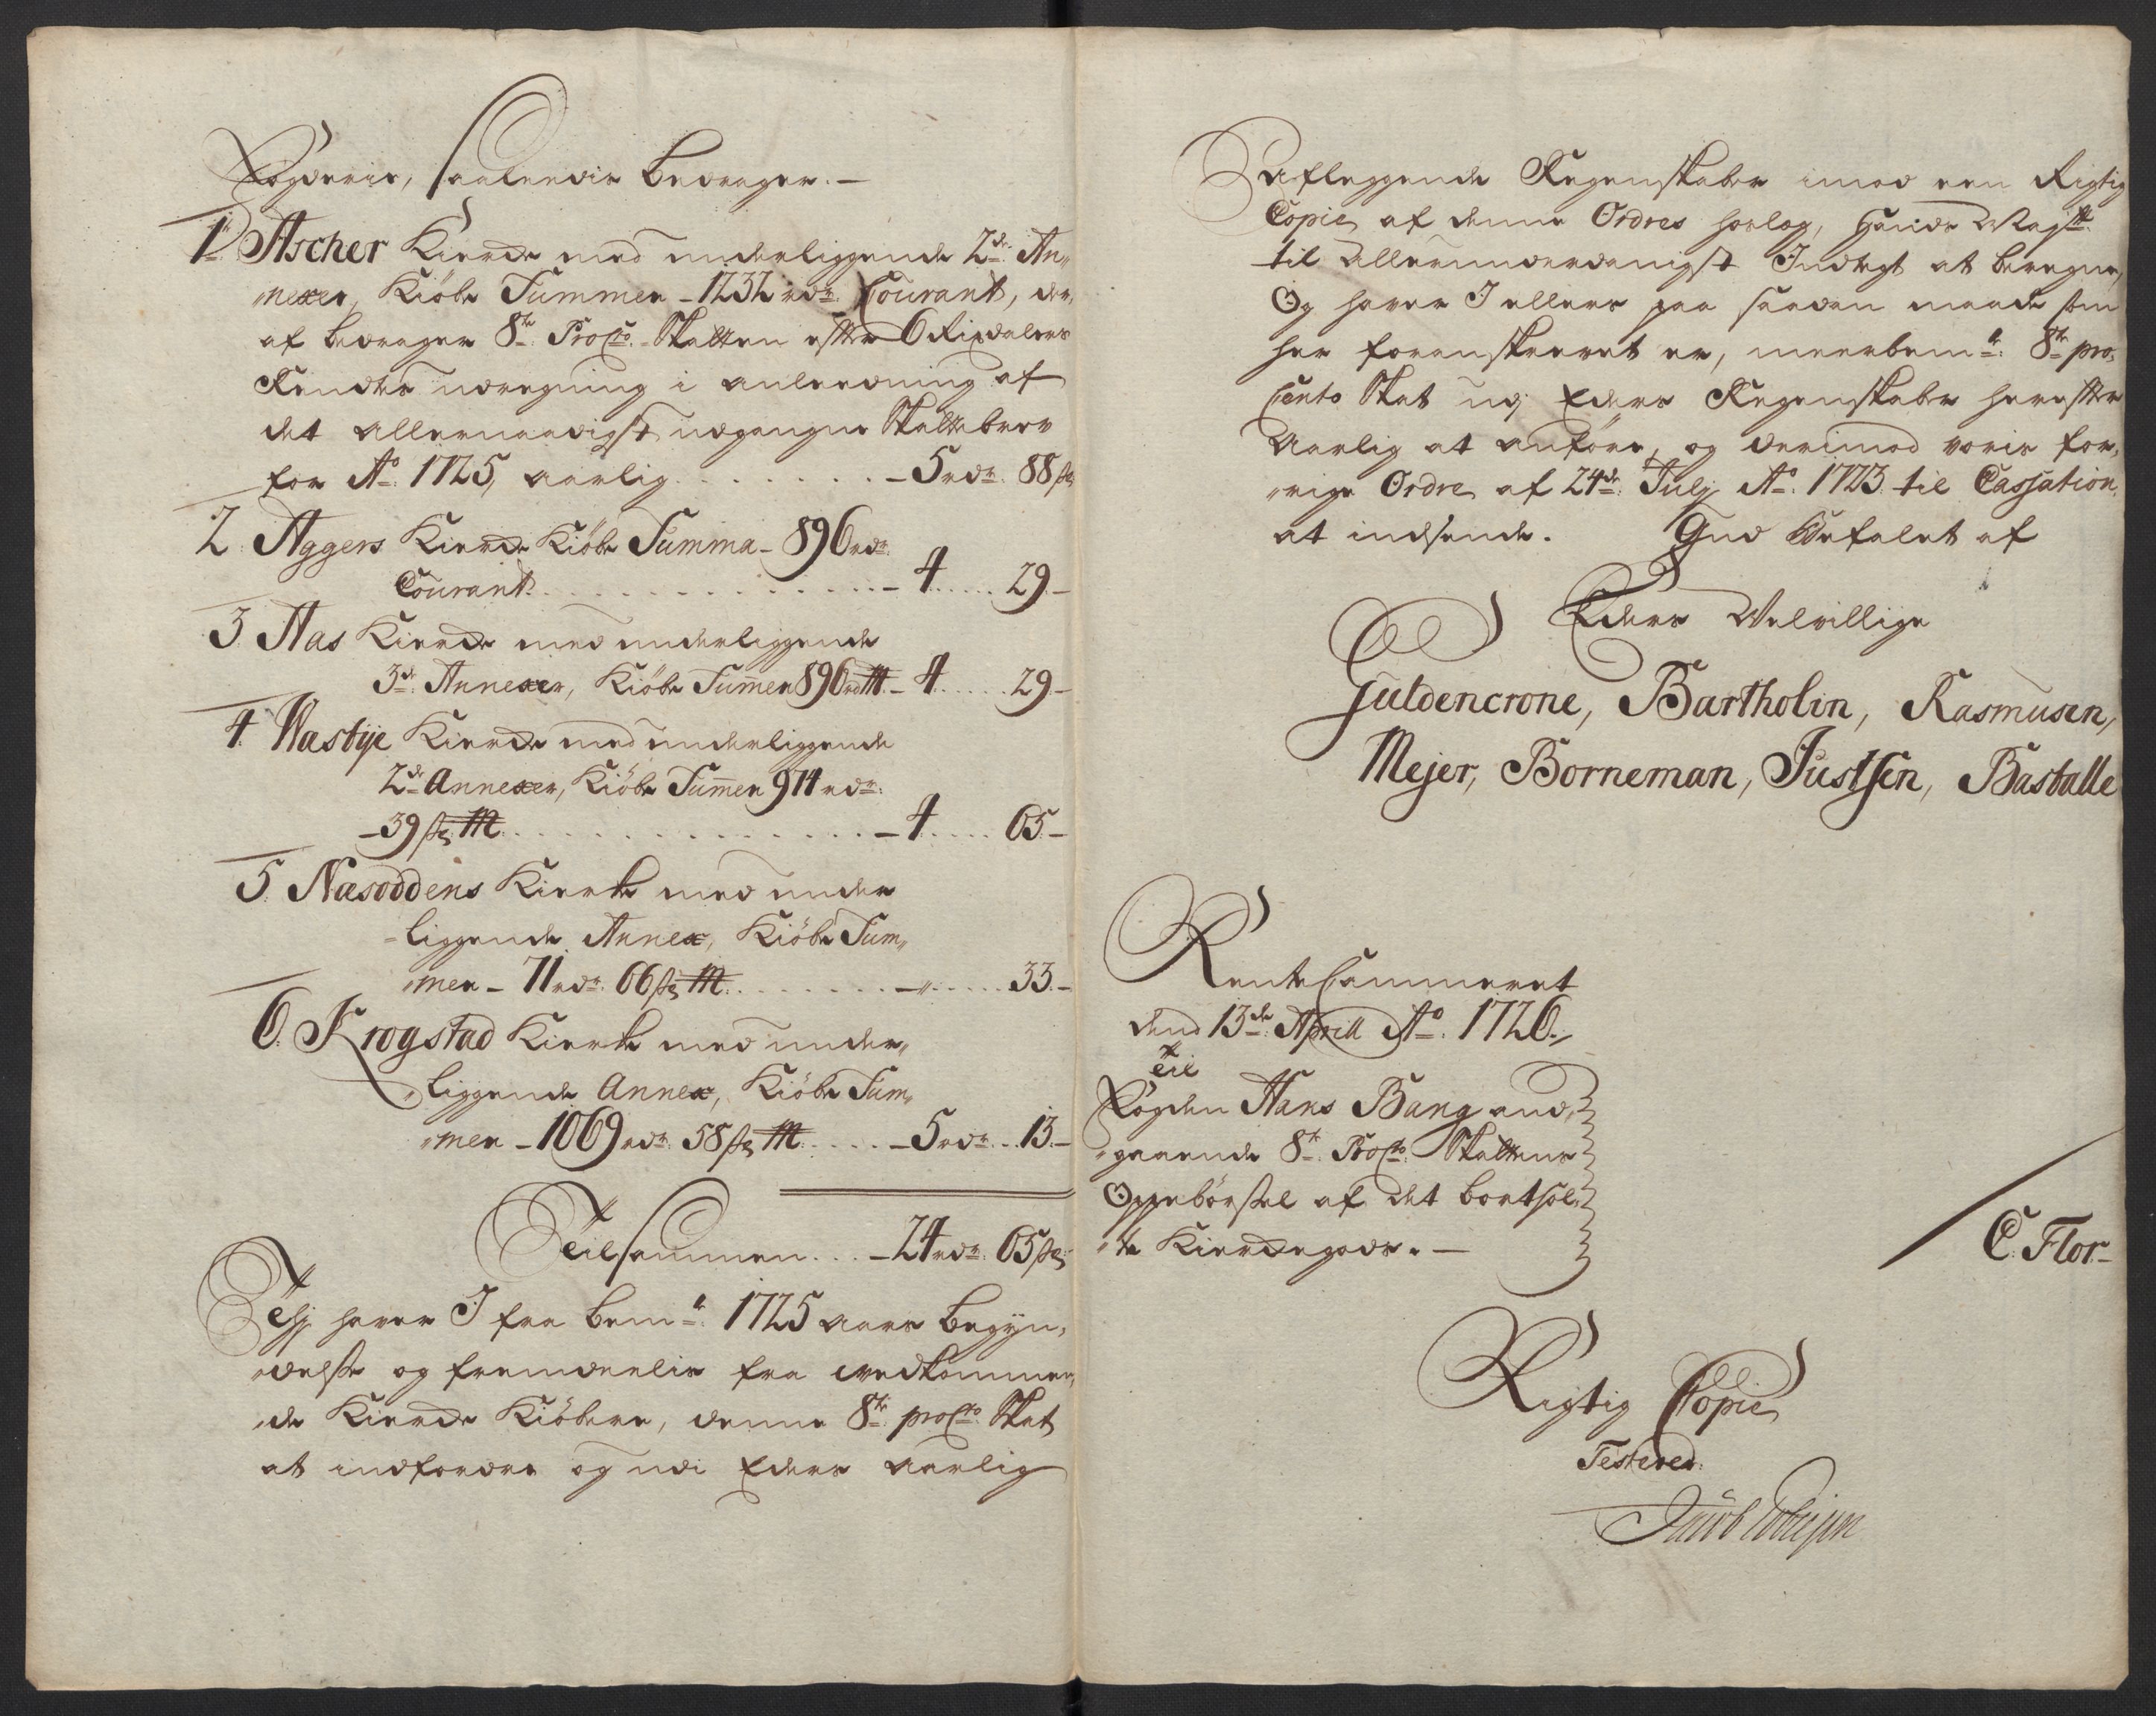 Fogderie, saaleedis bedrager.–
1. Ascher Kierche med underliggende 2de An„
„nexer, Kiöbe Summen – 1232 rdr Courant, der„
af bedrager 8te Procto Skatten efter 6 Rixdalers
Rendters udregning i anleedning af
det allernaadigst udgangne Skattebrev
for Ao 1725, aarlig . . . . . . . – 5 rdr. 88 ß
2. Aggers Kierche Kiöbe Summa – 896 rdr.
Courant . . . . . . . . . . . . – 4 . . . . 29 –
3. Aas Kierche med underliggende
3de Annexer, Kiöbe Summen 896 rd – 4 . . . . 29 –
4. Wasbye Kierche med underliggende
2de Annexer, Kiöbe Summen 974 rdr.
– 39 ß . . . . . . . . . . . . – 4 . . . . 65 –
5. Næsoddens Kierke med under
„liggende Annex, Kiöbe Sum„
„men – 71 rdr. 66 ß . . . . . . . – „ . . . . 33. –
6. Krogstad Kierke med under„
„liggende Annex, Kiöbe Sum„
„men – 1069 rdr. 58 ß . . . . – 5 rdr. . . 13. –
Tilsammen . . . – 24 rdr. 65 ß
Thj haver I fra bemte 1725 aars begyn„
„delse og fremdeelis fra vedkommen„
„de Kierche Kiöbere, denne 8te procto Skat
at indfordre og udi Eders aarlig
Aflæggende Regenskaber imod een Rigtig
Copie af denne Ordres forlæg, Hands Mayst:
til Allerunderdanigst Indtegt at beregne,
Og haver I ellers paa saadan maade som
her foranskrevet er, meerbemte 8te pro„
Cento Skat udj Eders Regenskaber herefter
Aarlig at anføre, og derimod voris for„
„rige Ordre af 24de Julj Ao. 1723 til Cassation
at indsende. Gud befalet af
Eders Velvillige
Guldencrone, Bartholin, Rasmusen,
Mejer, Borneman, Justsen, Basballe
Rente Cammeret
dend 13de Aprill Ao. 1726.
Til
Fogden Hans Bang and„
„gaaende 8te Procto Skattens
Oppebörsel af det bortsol„
„te Kierchegods. –
C. Flor –
Rigtig Copie
Testerer